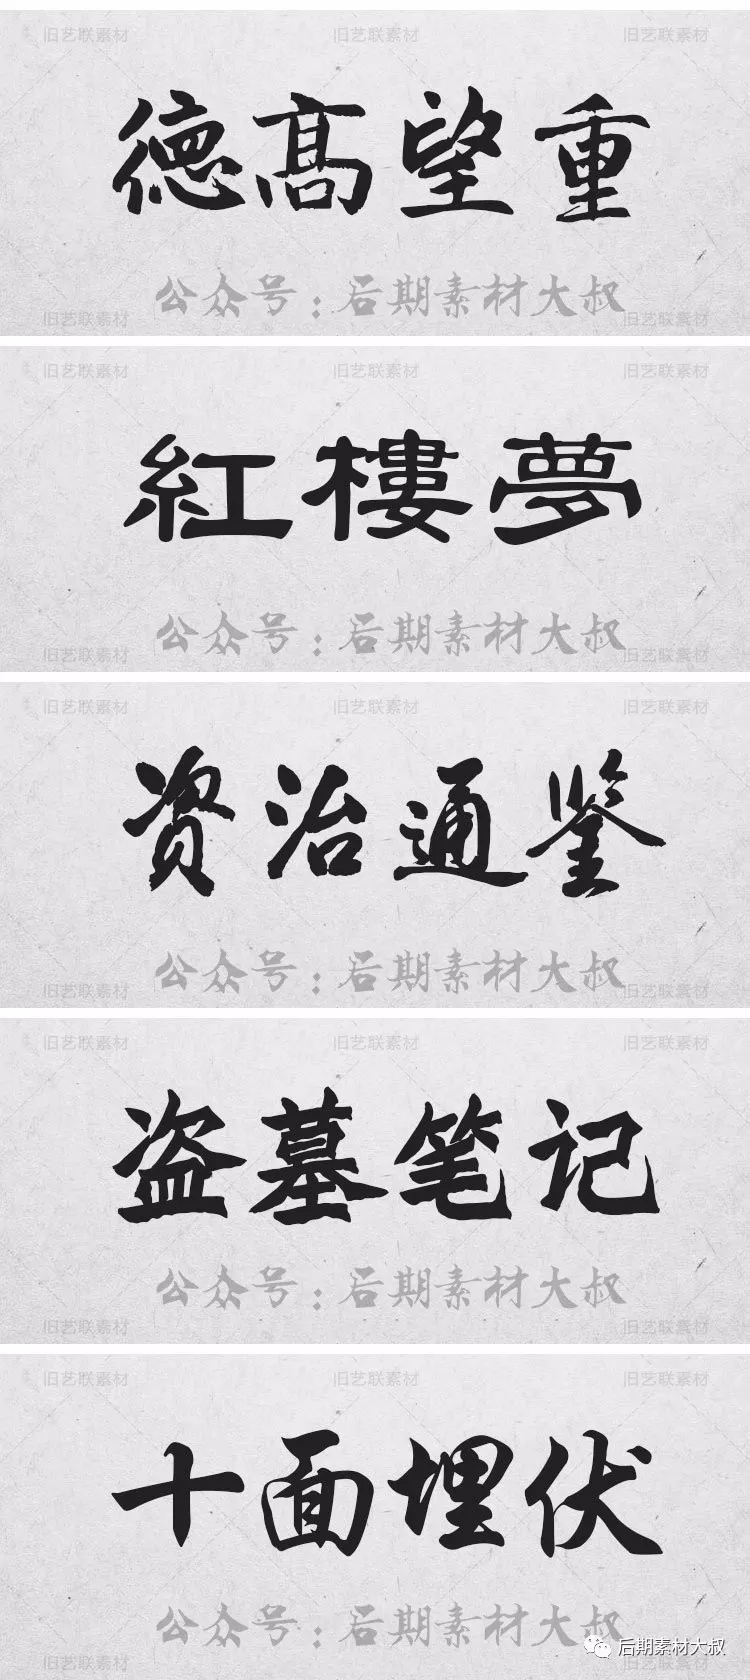 旧艺联素材 旧艺联素材 旧艺联素材
德高望重
公众号:后期素材大叔
旧艺联素材 旧艺联素材
旧艺联素材 旧艺联素材 旧艺联素材
紅樓夢
公众号:后期素材大叔
旧艺联素材 旧艺联素材
旧艺联素材 旧艺联素材 旧艺联素材
资治通鉴
公众号:后期素材大叔
旧艺联素材 旧艺联素材
旧艺联素材 旧艺联素材 旧艺联素材
盗墓笔记
公众号:后期素材大叔
旧艺联素材 旧艺联素材
旧艺联素材 旧艺联素材 旧艺联素材
十面埋伏
公众号:后期素材大叔
后期素材大叔
旧艺联素材 旧艺联素材